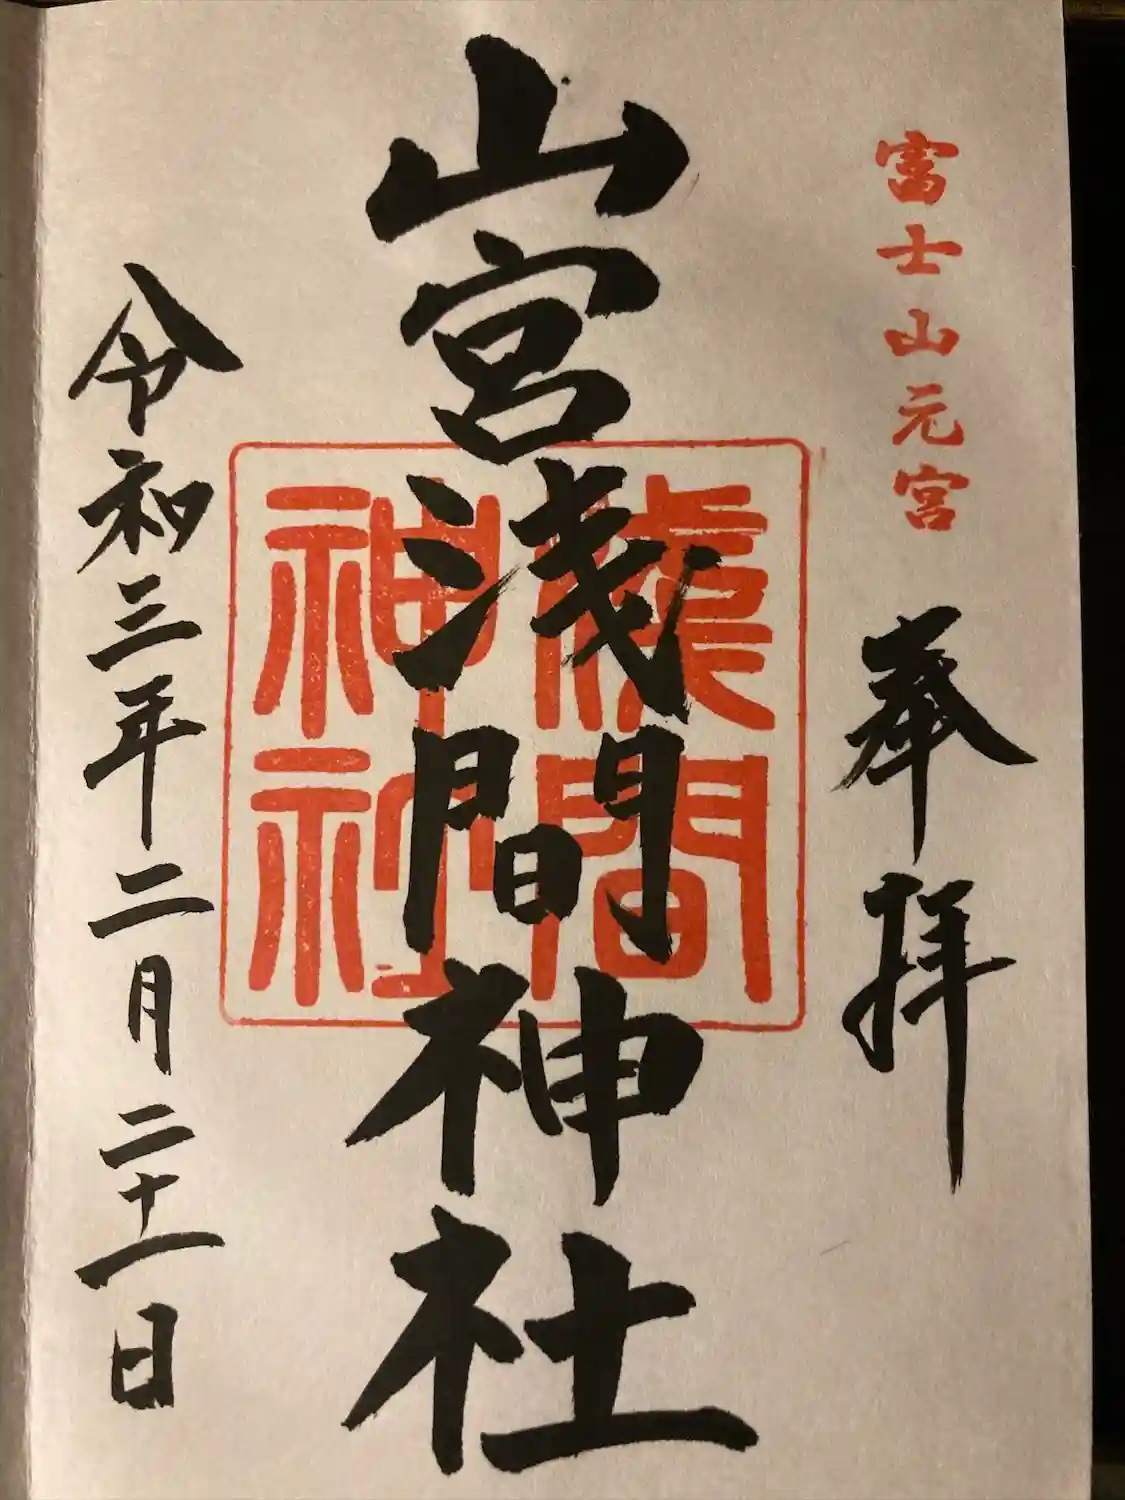 富士山元宮
奉拝
山宮浅間神社
浅間
神社
令和三年二月二十一日